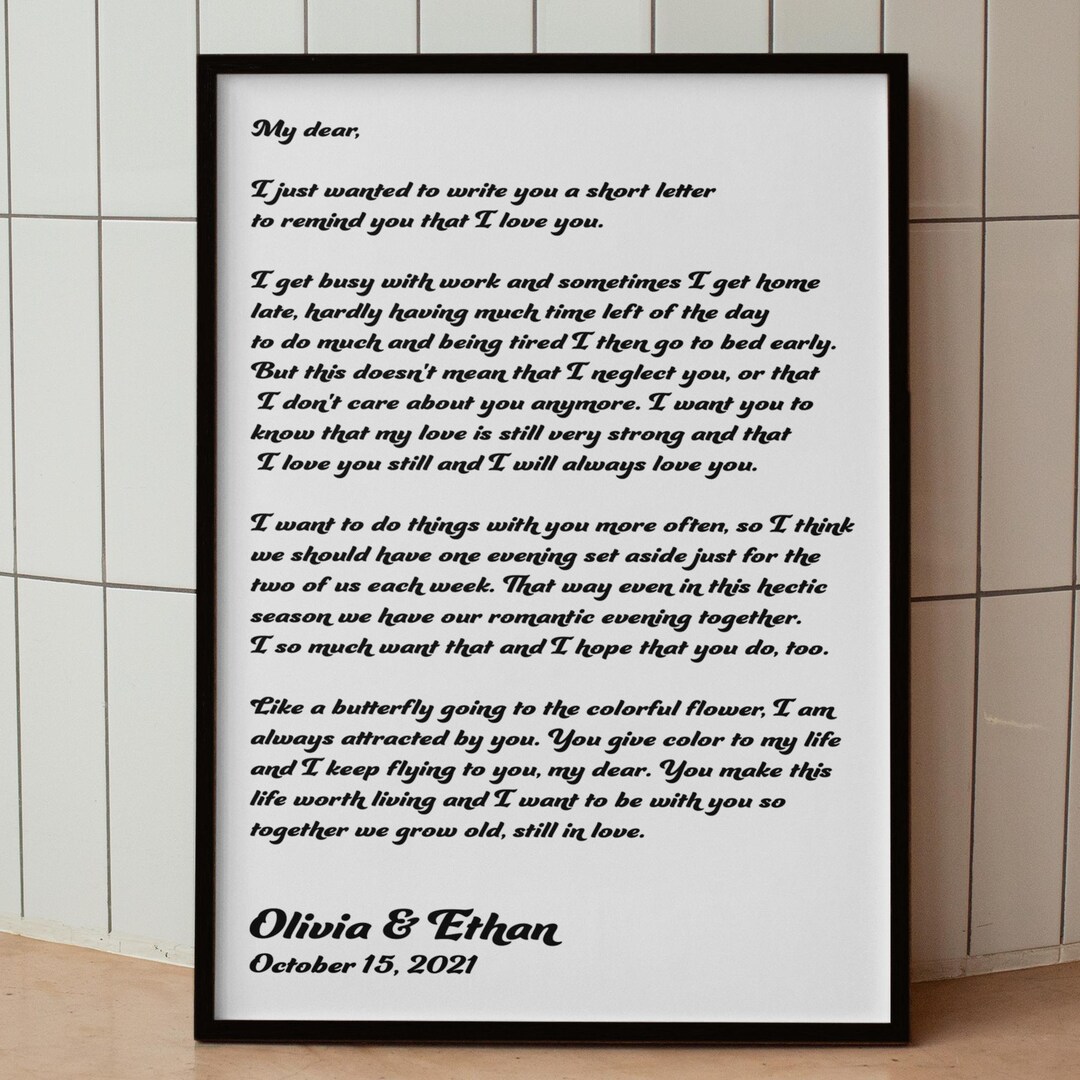 My dear,
I just wanted to write you a short letter
to remind you that I love you.
I get busy with work and sometimes I get home
late, hardly having much time left of the day
to do much and being tired I then go to bed early.
But this doesn't mean that I neglect you, or that
I don't care about you anymore. I want you to
know that my love is still very strong and that
I love you still and I will always love you.
I want to do things with you more often, so I think
we should have one evening set aside just for the
two of us each week. That way even in this hectic
season we have our romantic evening together.
I so much want that and I hope that you do, too.
Like a butterfly going to the colorful flower, I am
always attracted by you. You give color to my life
and I keep flying to you, my dear. You make this
life worth living and I want to be with you so
together we grow old, still in love.
Olivia & Ethan
October 15, 2021